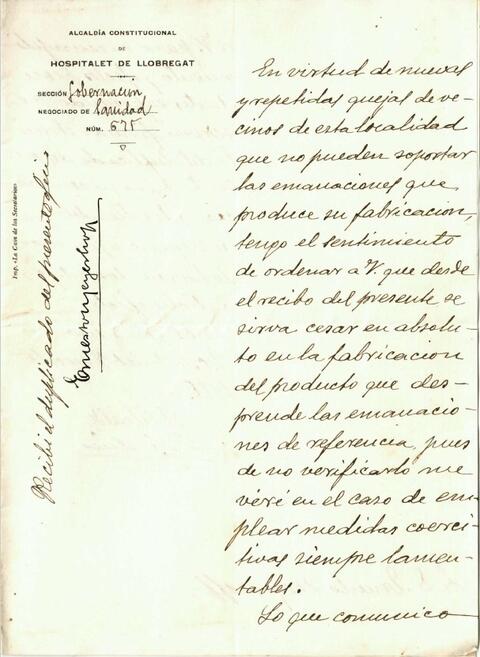 ALCALDÍA CONSTITUCIONAL
DE
HOSPITALET DE LLOBREGAT
SECCIÓN Gobernación
NEGOCIADO DE Sanidad
NÚM. 675
Imp. «La Casa de los Secretarios»
Recibí el duplicado del presente oficio
Ernesto Meyerhoff
En virtud de nuevas
y repetidas quejas de ve-
cinos de esta localidad
que no pueden soportar
las emanaciones que
produce su fabricación,
tengo el sentimiento
de ordenar a V. que desde
el recibo del presente se
sirva cesar en absolu-
to en la fabricacion
del producto que des-
prende las emanacio-
nes de referencia, pues
de no verificarlo me
veré en el caso de em-
plear medidas coerci-
tivas siempre lamen-
tables.
Lo que comunico